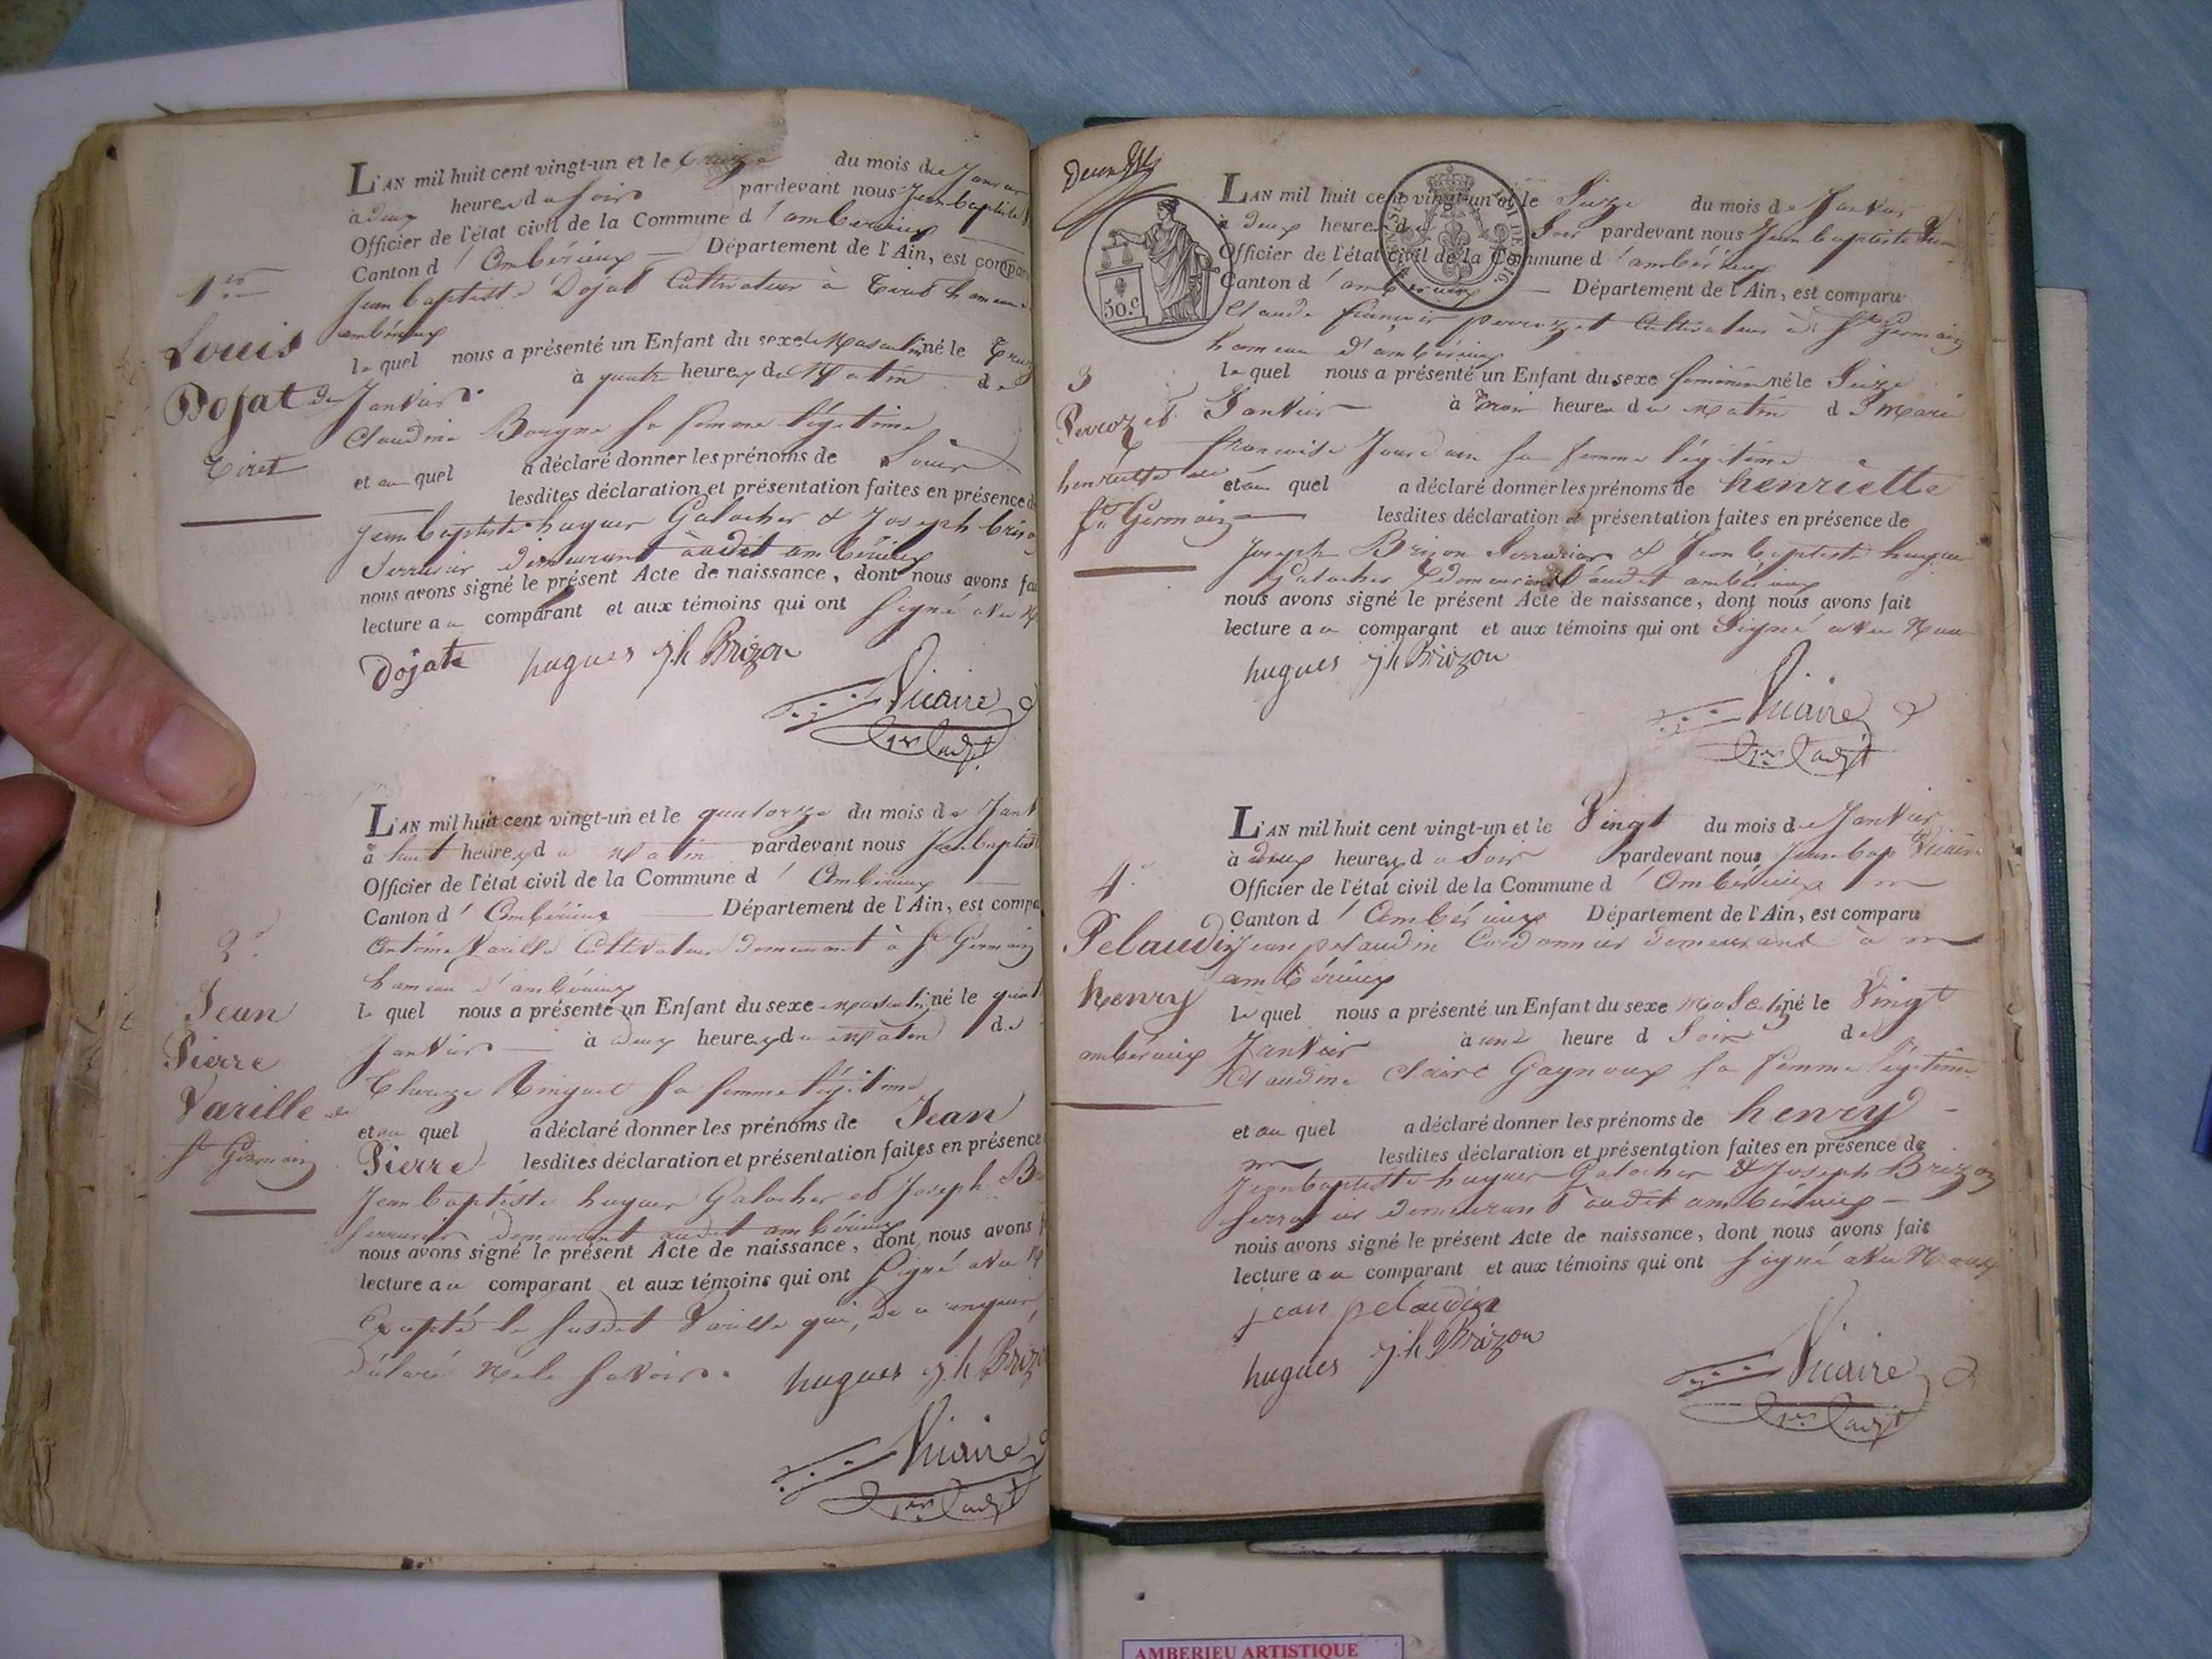 1er
Louis
Dojat de
Tiret
L'AN mil huit cent vingt-un et le treize du mois de Janvier
à deux heures du soir pardevant nous Jean baptiste
Officier de l'état civil de la Commune d'ambérieux
Canton d'Ambérieux Département de l'Ain, est compar
Jean baptiste Dojat Cultivateur à Tiret hameau
ambérieux
le quel nous a présenté un Enfant du sexe Masculin né le
Janvier à quatre heures du Matin de
Claudine Borgne sa femme légitime
et au quel a déclaré donner les prénoms de Louis
lesdites déclaration et présentation faites en présence de
Jean baptiste hugues Galocher & Joseph briz
Serrurier demeurant audit ambérieux
nous avons signé le présent Acte de naissance, dont nous avons fai
lecture au comparant et aux témoins qui ont signé avec
Dojat hugues jh Brizon
Vicaire
1er adjt
2e
Jean
Pierre
Varille de
St Germain
L'AN mil huit cent vingt-un et le quatorze du mois de Janv
à huit heures du Matin pardevant nous Jean baptist
Officier de l'état civil de la Commune d'Ambérieux
Canton d'Ambérieux Département de l'Ain, est compa
Antoine Varille Cultivateur demeurant à St Germain
hameau d'ambérieux
le quel nous a présenté un Enfant du sexe Masculin né le
Janvier à deux heures du Matin de
Thereze Ringuet sa femme légitime
et au quel a déclaré donner les prénoms de Jean
Pierre lesdites déclaration et présentation faites en présence
Jean baptiste hugues Galocher et Joseph B
serrurier demeurant audit ambérieux
nous avons signé le présent Acte de naissance, dont nous avons f
lecture au comparant et aux témoins qui ont signé avec
Excepté le susdit Varille qui, de ce enquis,
déclaré Ne le savoir. hugues jh Briz
Vicaire
1er adjt
50.c
3
Perrozet
henriette de
St Germain
L'AN mil huit cent vingt-un et le Seize du mois de Janvier
à deux heures du Soir pardevant nous Jean baptiste
Officier de l'état civil de la Commune d'ambérieux
Canton d'ambérieux Département de l'Ain, est comparu
Claude françois perrozet Cultivateur à St Germain
hameau d'ambérieux
le quel nous a présenté un Enfant du sexe feminin né le Seize
Janvier à trois heures du Matin de Marie
francoise Jourdain sa femme légitime
et au quel a déclaré donner les prénoms de henriette
lesdites déclaration et présentation faites en présence de
Joseph Brizon Serrurier & Jean baptiste hugues
Galocher demeurant audit ambérieux
nous avons signé le présent Acte de naissance, dont nous avons fait
lecture au comparant et aux témoins qui ont Signé avec Nous
hugues jh Brizon
Vicaire
1er adjt
4e
Pelaudin
henry
ambérieux
L'AN mil huit cent vingt-un et le Vingt du mois de Janvier
à deux heures du Soir pardevant nous Jean bap Vicaire
Officier de l'état civil de la Commune d'Ambérieux
Canton d'Ambérieux Département de l'Ain, est comparu
Jean pelaudin Cordonnier demeurant à
ambérieux
le quel nous a présenté un Enfant du sexe Masculin né le Vingt
Janvier à une heure d Soir de
Claudine Claire Gagnoux sa femme légitime
et au quel a déclaré donner les prénoms de henry
lesdites déclaration et présentation faites en présence de
Jean baptiste hugues Galocher & Joseph Brizon
serrurier demeurant audit ambérieux
nous avons signé le présent Acte de naissance, dont nous avons fait
lecture au comparant et aux témoins qui ont signé avec Nous
jean pelaudin
hugues jh Brizon
Vicaire
1er adjt
AMBERIEU ARTISTIQUE